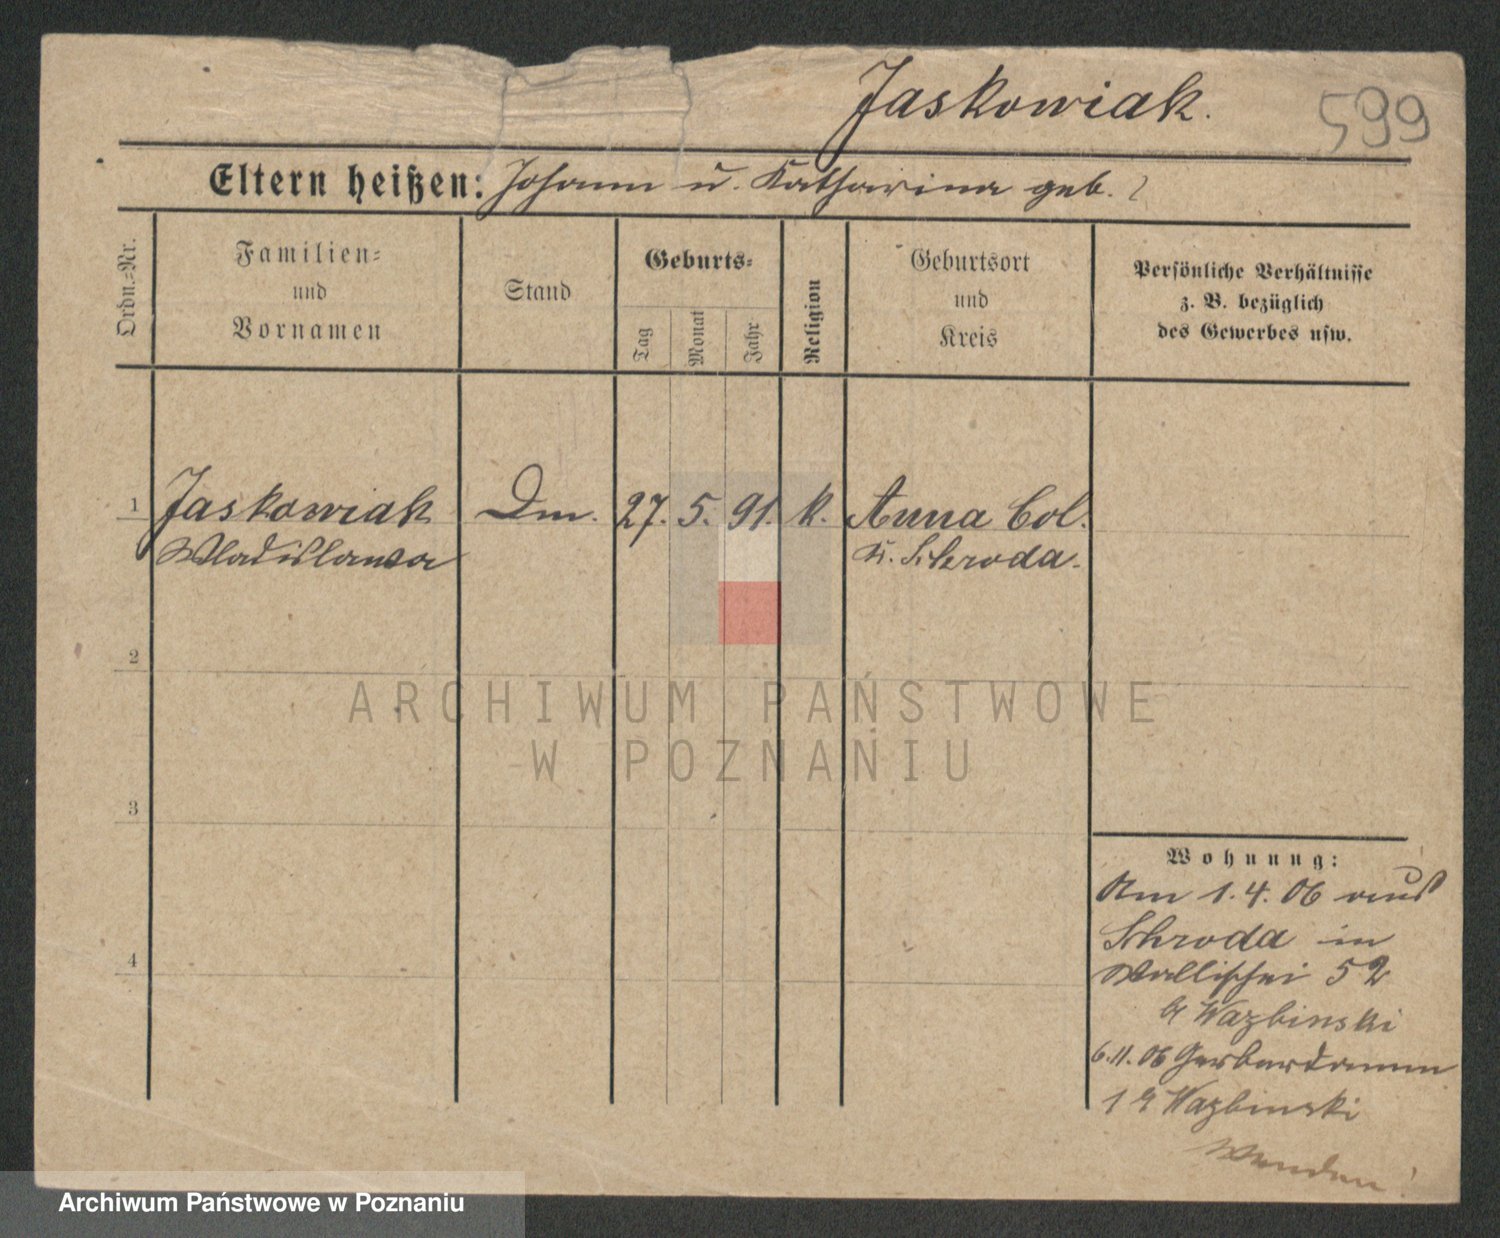 Jaskowiak.
599
Eltern heißen: Johann u. Katharina geb. ?
Ordn.=Nr.
Familien=
und
Vornamen
Stand
Geburts=
Tag
Monat
Jahr
Religion
Geburtsort
und
Kreis
Persönliche Verhältnisse
z. B. bezüglich
des Gewerbes usw.
1 Jaskowiak Dm. 27. 5. 91. k. Anna Col.
Wladislawa K. Schroda.
2
ARCHIWUM PAŃSTWOWE
W POZNANIU
3
Wohnung:
Am 1.4.06 aus
Schroda in
Wallischei 52
Wazbinski
6.11.06 Gerberdamm
1 Wazbinski
4
Wenden!
Archiwum Państwowe w Poznaniu